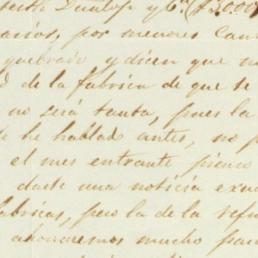 Dunlop y Ca. ($3.000
varios, por menores can
quebrado y dicen que n
d de la fabrica de que te
no será tanta, pues la
te he hablado antes, no p
el mes entrante pienso
darte una noticia exac
fabricas, pero la de la refin
ahorraremos mucho par